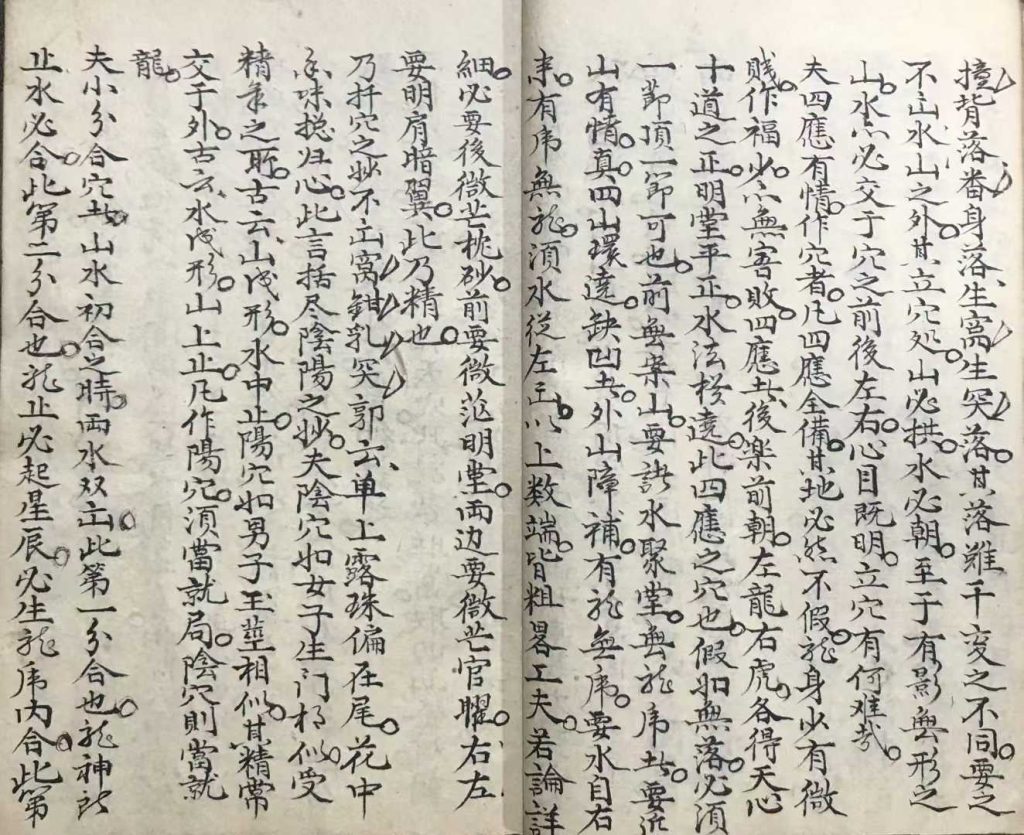 撞背落番身落生窩生突落其落雖千变之不同要之
不出水山之外其立穴処山必拱水必朝至于有影無形之
山水亦必交于穴之前後左右心目既明立穴有何难哉
夫四應有情作穴者凡四應全備其地必然不假龙身少有微
賎作福少亦無害敗四應者後楽前朝左龍右虎各得天心
十道之正明堂平正水法移遶此四應之穴也假如無落必須
一節頂一節可也前無案山要訣水聚堂無龙虎者要近
山有情真四山環遶缺凹者外山障補有龙無虎要水自右
来有虎無龙須水從左出以上数端皆粗畧工夫若論詳
細必要後微茫枕砂前要微茫明堂両边要微茫官曜右左
要明肩暗翼此乃精也
乃扦穴之妙不出窩鉗乳突郭云单上露珠偏在尾花中
香味揔归心此言括尽陰陽之妙夫陰穴如女子生门相似受
精氣之所古云山成形水中止陽穴如男子玉莖相似其精常
交于外古云水成形山上止凡作陽穴須當就局陰穴則當就
龍
夫小分合穴者山水初合之時両水双出此第一分合也龙神所
止水必合此第二分合也龙止必起星辰必生龙虎内合此第